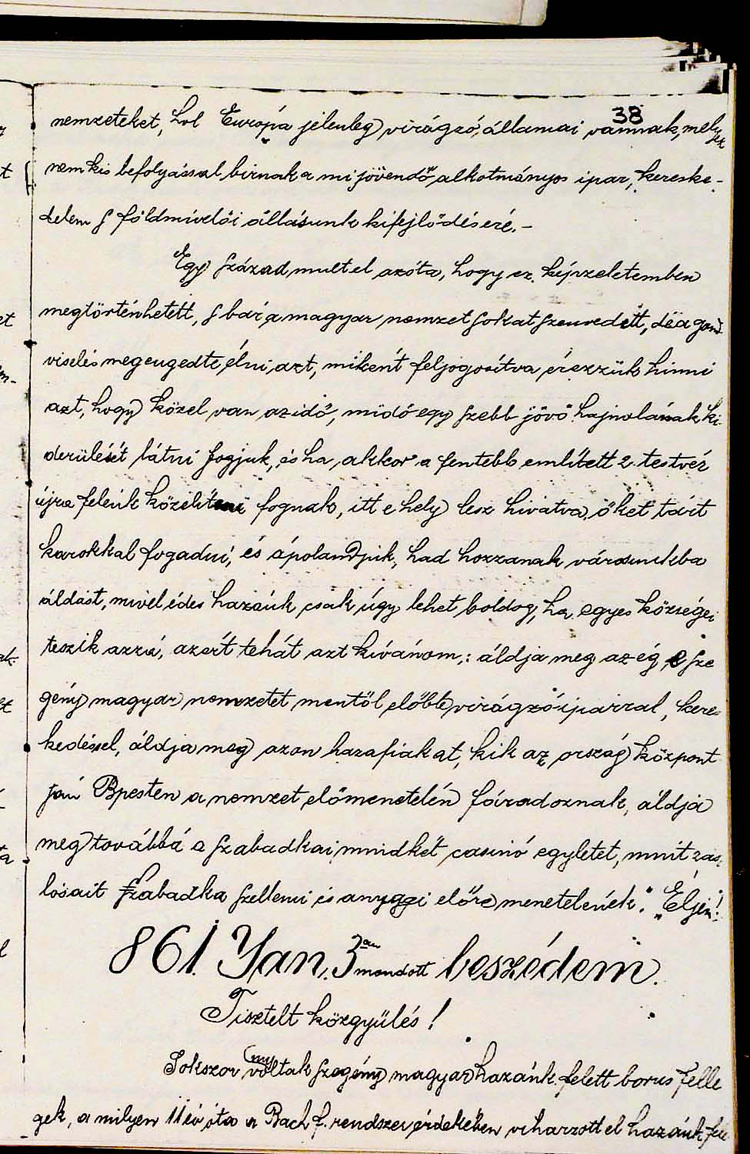 38
nemzeteket, hol Európa jelenleg virágzó államai vannak, melyek
nem kis befolyással birnak a mi jövendő alkotmányos ipar, kereske-
delem s földmivelői állásunk kifejlődéseré.-
Egy század mult el azóta, hogy ez képzeletemben
megtörténhetett, s bár a magyar nemzet sokat szenvedett, de a gond
viselés megengedte élni, azt, miként feljogosítva érezzük hinni
azt, hogy közel van az idő, midő egy szebb jövő hajnalának ki
derülését látni fogjuk, és ha, akkor a fentebb említett 2 testvér
újra felénk közelíteni fognak, itt e hely lesz hivatva, őket tárt
karokkal fogadni, és ápolandjuk, had hozzanak városunkba
áldást, mivel édes hazánk csak úgy lehet boldog, ha, egyes községei
teszik azzá, azért tehát azt kívánom,: áldja meg az ég e sze
gény magyar nemzetet mentől előbb virágzó iparral, keres
kedéssel, áldja meg azon hazafiakat, kik az ország központ
ján Bpesten a nemzet előmenetelén fáradoznak, áldja
meg továbbá a szabadkai mindkét casinó egyletet, mint zász
lósait Szabadka szellemi és anyagi előre menetelének". "Éljen!
861. Jan. 3án mondott beszédem.
Tisztelt közgyülés!
Sokszor voltak szegény magyar hazánk felett borus felle
gek, a milyen 11 év óta a Bach f. rendszer érdekében viharzott el hazánk fe